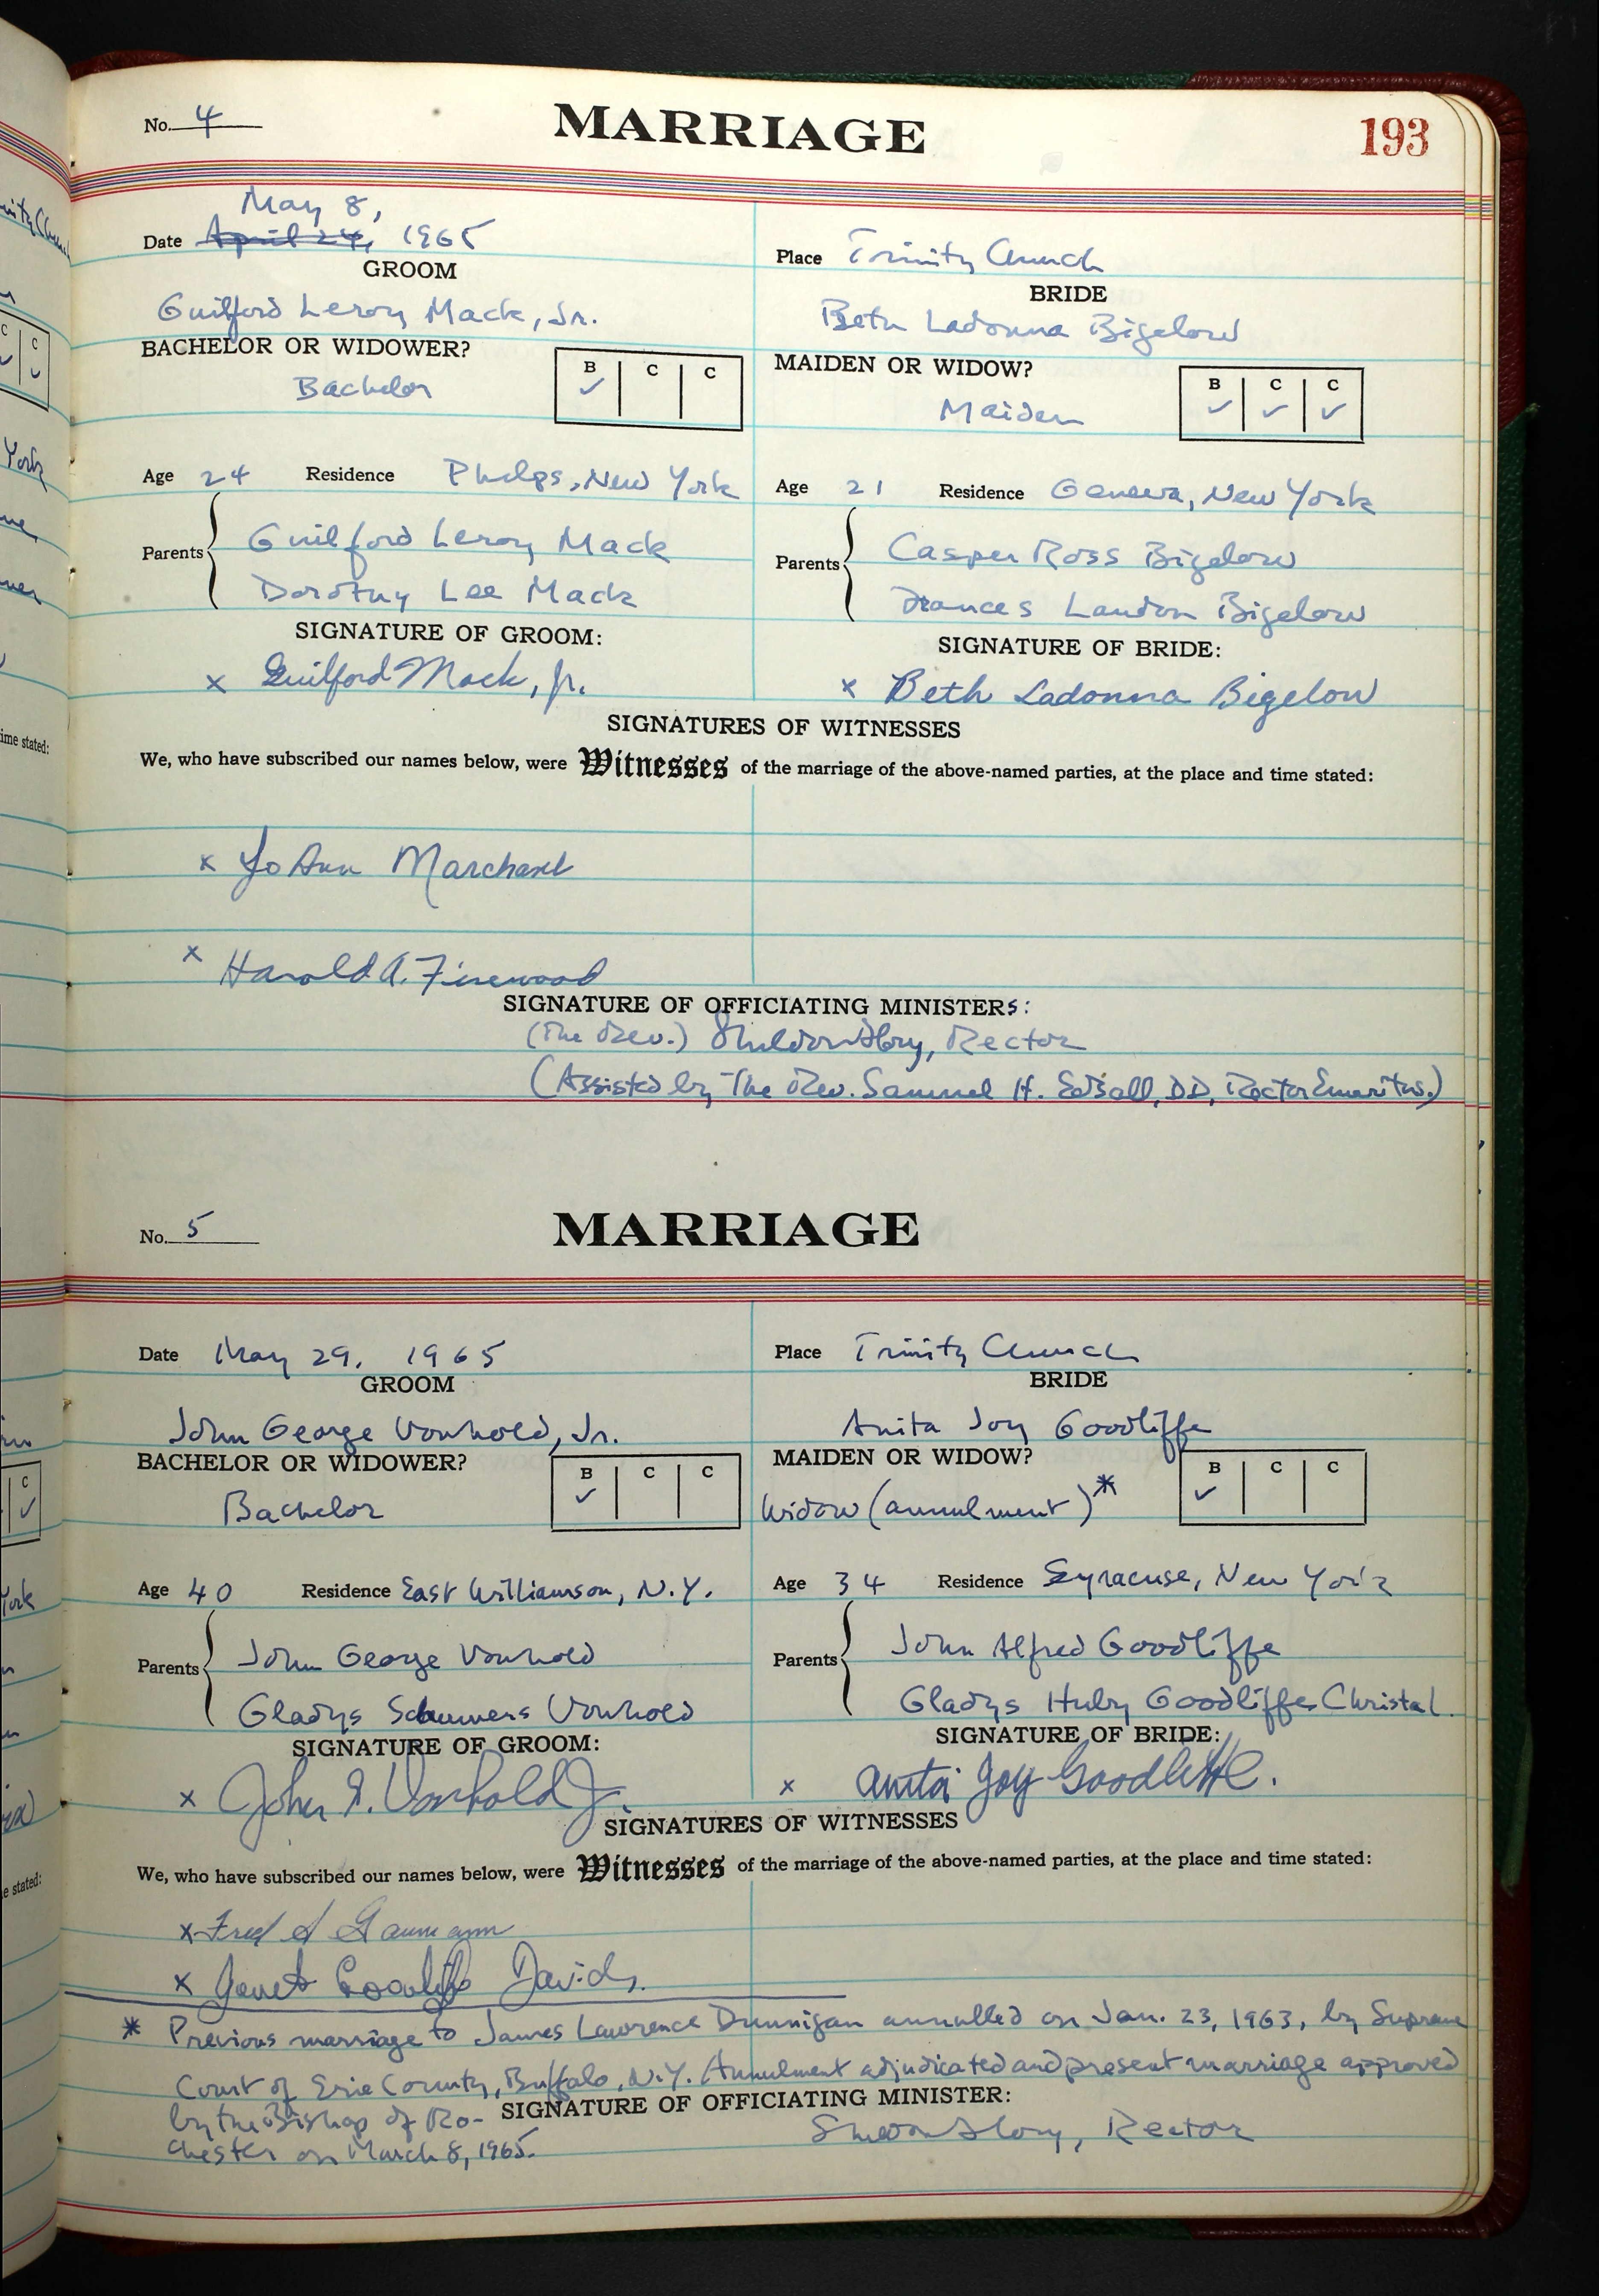 No. 4
MARRIAGE
193
May 8,
Date April 24, 1965
Place Trinity Church
GROOM
BRIDE
Guilford Leroy Mack, Jr.
Beth Ladonna Bigelow
BACHELOR OR WIDOWER?
B C C
MAIDEN OR WIDOW?
B C C
Bachelor
✓
Maiden
✓ ✓ ✓
Age 24 Residence Phelps, New York
Age 21 Residence Geneva, New York
Parents
Guilford Leroy Mack
Dorothy Lee Mack
Parents
Casper Ross Bigelow
Frances Landon Bigelow
SIGNATURE OF GROOM:
SIGNATURE OF BRIDE:
x Guilford Mack, Jr.
x Beth Ladonna Bigelow
SIGNATURES OF WITNESSES
We, who have subscribed our names below, were Witnesses of the marriage of the above-named parties, at the place and time stated:
x JoAnn
x Harold A.
SIGNATURE OF OFFICIATING MINISTERS:
(The Rev.) Rector
(Assisted by The Rev. Samuel H. Edsall, DD, Rector Emeritus.)
No. 5
MARRIAGE
Date May 29, 1965
Place Trinity Church
GROOM
BRIDE
John George Vonhold, Jr.
Anita Joy Goodliffe
BACHELOR OR WIDOWER?
B C C
MAIDEN OR WIDOW?
B C C
Bachelor
✓
Widow (annulment)*
✓
Age 40 Residence East Williamson, N.Y.
Age 34 Residence Syracuse, New York
Parents
John George Vonhold
Gladys Vonhold
Parents
John Alfred Goodliffe
Gladys Huby Goodliffe Christal
SIGNATURE OF GROOM:
SIGNATURE OF BRIDE:
x John G. Vonhold Jr.
x Anita Joy Goodliffe.
SIGNATURES OF WITNESSES
We, who have subscribed our names below, were Witnesses of the marriage of the above-named parties, at the place and time stated:
x Fred
x Janet Goodliffe Davids.
* Previous marriage to James Lawrence Dunnigan annulled on Jan. 23, 1963, by Supreme
Court of Erie County, Buffalo, N.Y. Annulment adjudicated and present marriage approved
by the Bishop of Ro-
chester on March 8, 1965.
SIGNATURE OF OFFICIATING MINISTER:
Rector